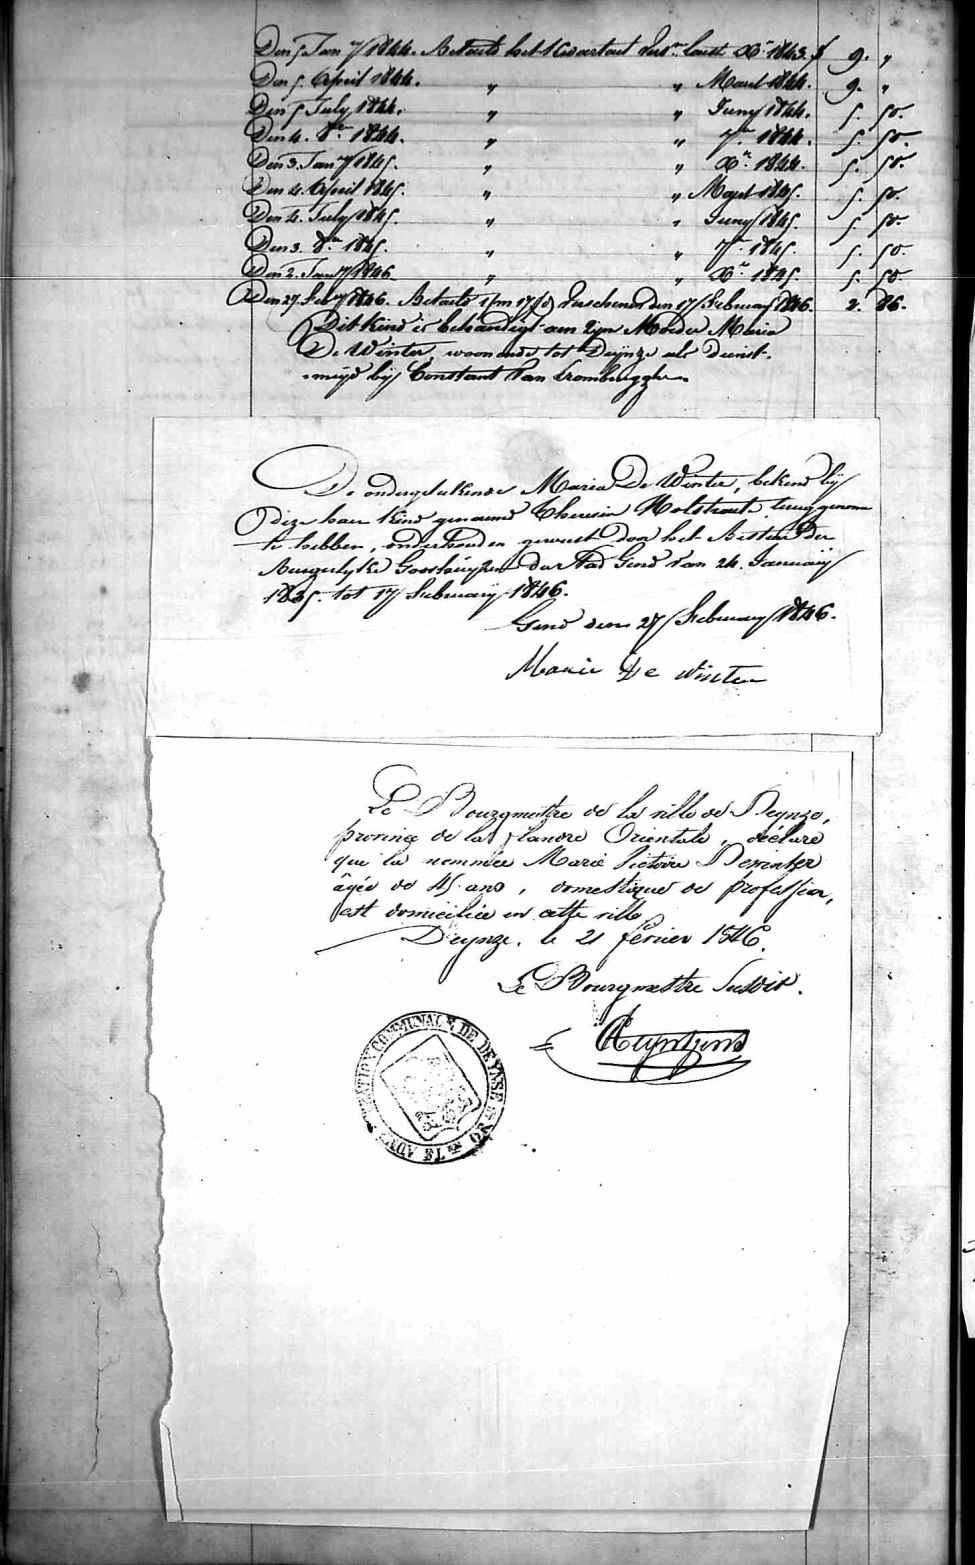 Den 5 Jan.y 1844. Betaelt het Kwartaal Vers.n laetst Xr 1843. f 9. "
Den 5. April 1844. " " Maert 1844. 9. "
Den 5 July 1844. " " Juny 1844. 5. 50.
Den 4. 8er 1844. " " 7er 1844. 5. 50.
Den 3. Jan.y 1845. " " Xr 1844. 5. 50.
Den 4. April 1845. " " Maert 1845. 5. 50.
Den 4. July 1845. " " Juny 1845. 5. 50.
Den 3. 8er 1845. " " 7er 1845. 5. 50.
Den 2. Jan.y 1846 " " Xr 1845. 5. 50
Den 27. Feb.y 1846. Betaelt 1/m 17/d Verschenen den 17 february 1846. 2. 86.
Dit Kind is behandigt aen zyn Moeder Maria
De Winter, woonende tot Deynze als dienst-
meyd by Constant Van Crombrugghe
De ondergeteekende Maria De Winter, bekend by
deze haer Kind genaemd Theresia Holstraete, terug genomen
te hebben, onderhouden geweest door het Bestuer der
Burgerlyke Godshuyzen der Stad Gend van 24. January
1835. tot 17 february 1846.
Gend den 27 february 1846.
Marie De Winter
Le Bourgmestre de la ville de Deynze,
province de la Flandre Orientale, déclare
que la nommée Marie Victoire Dewinter
âgée de 45 ans, domestique de profession,
est domiciliée en cette ville
Deynze, le 21 février 1846.
Le Bourgmestre Susdit.
ADMINISTRATION COMMUNALE DE DEYNSE